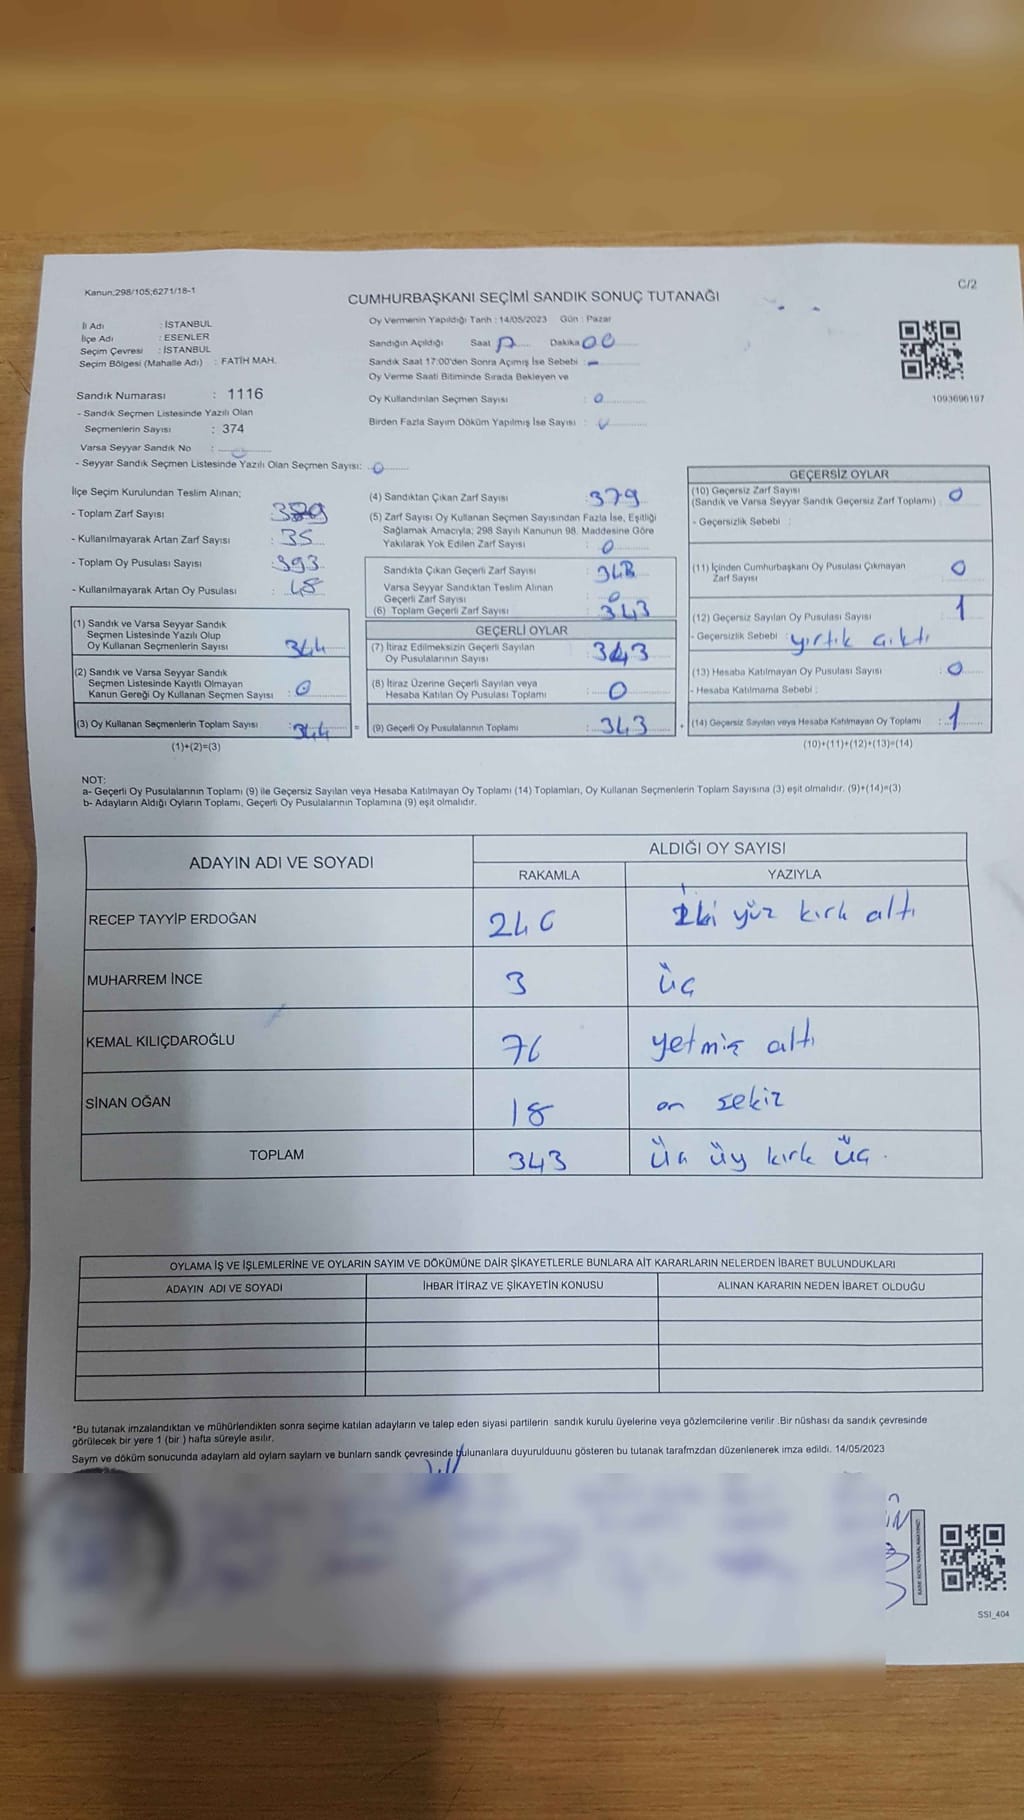 Kanun;298/105;6271/18-1
C/2
CUMHURBAŞKANI SEÇİMİ SANDIK SONUÇ TUTANAĞI
İl Adı : İSTANBUL
İlçe Adı : ESENLER
Seçim Çevresi : İSTANBUL
Seçim Bölgesi (Mahalle Adı) : FATİH MAH.
Oy Vermenin Yapıldığı Tarih : 14/05/2023 Gün : Pazar
Sandığın Açıldığı Saat Dakika 00
Sandık Saat 17:00'den Sonra Açımış İse Sebebi : -
Oy Verme Saati Bitiminde Sırada Bekleyen ve
Oy Kullandırılan Seçmen Sayısı : 0
Birden Fazla Sayım Döküm Yapılmış İse Sayısı :
1093696197
Sandık Numarası : 1116
- Sandık Seçmen Listesinde Yazılı Olan
Seçmenlerin Sayısı : 374
Varsa Seyyar Sandık No :
- Seyyar Sandık Seçmen Listesinde Yazılı Olan Seçmen Sayısı: 0
İlçe Seçim Kurulundan Teslim Alınan;
- Toplam Zarf Sayısı
- Kullanılmayarak Artan Zarf Sayısı : 35
- Toplam Oy Pusulası Sayısı : 393
- Kullanılmayarak Artan Oy Pusulası :
(1) Sandık ve Varsa Seyyar Sandık
Seçmen Listesinde Yazılı Olup
Oy Kullanan Seçmenlerin Sayısı 344
(2) Sandık ve Varsa Seyyar Sandık
Seçmen Listesinde Kayıtlı Olmayan
Kanun Gereği Oy Kullanan Seçmen Sayısı : 0
(3) Oy Kullanan Seçmenlerin Toplam Sayısı : 344 =
(1)+(2)=(3)
(4) Sandıktan Çıkan Zarf Sayısı : 379
(5) Zarf Sayısı Oy Kullanan Seçmen Sayısından Fazla İse, Eşitliği
Sağlamak Amacıyla; 298 Sayılı Kanunun 98. Maddesine Göre
Yakılarak Yok Edilen Zarf Sayısı : 0
Sandıkta Çıkan Geçerli Zarf Sayısı : 343
Varsa Seyyar Sandıktan Teslim Alınan
Geçerli Zarf Sayısı : 0
(6) Toplam Geçerli Zarf Sayısı : 343
GEÇERLİ OYLAR
(7) İtiraz Edilmeksizin Geçerli Sayılan
Oy Pusulalarının Sayısı : 343
(8) İtiraz Üzerine Geçerli Sayılan veya
Hesaba Katılan Oy Pusulası Toplamı : 0
(9) Geçerli Oy Pusulalarının Toplamı : 343 +
GEÇERSİZ OYLAR
(10) Geçersiz Zarf Sayısı
(Sandık ve Varsa Seyyar Sandık Geçersiz Zarf Toplamı) : 0
- Geçersizlik Sebebi :
(11) İçinden Cumhurbaşkanı Oy Pusulası Çıkmayan
Zarf Sayısı : 0
(12) Geçersiz Sayılan Oy Pusulası Sayısı : 1
- Geçersizlik Sebebi : yırtık çıktı
(13) Hesaba Katılmayan Oy Pusulası Sayısı : 0
- Hesaba Katılmama Sebebi :
(14) Geçersiz Sayılan veya Hesaba Katılmayan Oy Toplamı : 1
(10)+(11)+(12)+(13)=(14)
NOT:
a- Geçerli Oy Pusulalarının Toplamı (9) ile Geçersiz Sayılan veya Hesaba Katılmayan Oy Toplamı (14) Toplamları, Oy Kullanan Seçmenlerin Toplam Sayısına (3) eşit olmalıdır. (9)+(14)=(3)
b- Adayların Aldığı Oyların Toplamı, Geçerli Oy Pusulalarının Toplamına (9) eşit olmalıdır.
ADAYIN ADI VE SOYADI
ALDIĞI OY SAYISI
RAKAMLA YAZIYLA
RECEP TAYYİP ERDOĞAN 246 İki yüz kırk altı
MUHARREM İNCE 3 üç
KEMAL KILIÇDAROĞLU 76 yetmiş altı
SİNAN OĞAN 18 on sekiz
TOPLAM 343 Üç üy kırk üç.
OYLAMA İŞ VE İŞLEMLERİNE VE OYLARIN SAYIM VE DÖKÜMÜNE DAİR ŞİKAYETLERLE BUNLARA AİT KARARLARIN NELERDEN İBARET BULUNDUKLARI
ADAYIN ADI VE SOYADI İHBAR İTİRAZ VE ŞİKAYETİN KONUSU ALINAN KARARIN NEDEN İBARET OLDUĞU
*Bu tutanak imzalandıktan ve mühürlendikten sonra seçime katılan adayların ve talep eden siyasi partilerin sandık kurulu üyelerine veya gözlemcilerine verilir .Bir nüshası da sandık çevresinde
görülecek bir yere 1 (bir ) hafta süreyle asılır.
Saym ve döküm sonucunda adaylarn ald oylarn saylarn ve bunlarn sandk çevresinde bulunanlara duyurulduunu gösteren bu tutanak tarafmzdan düzenlenerek imza edildi. 14/05/2023
SSI_404